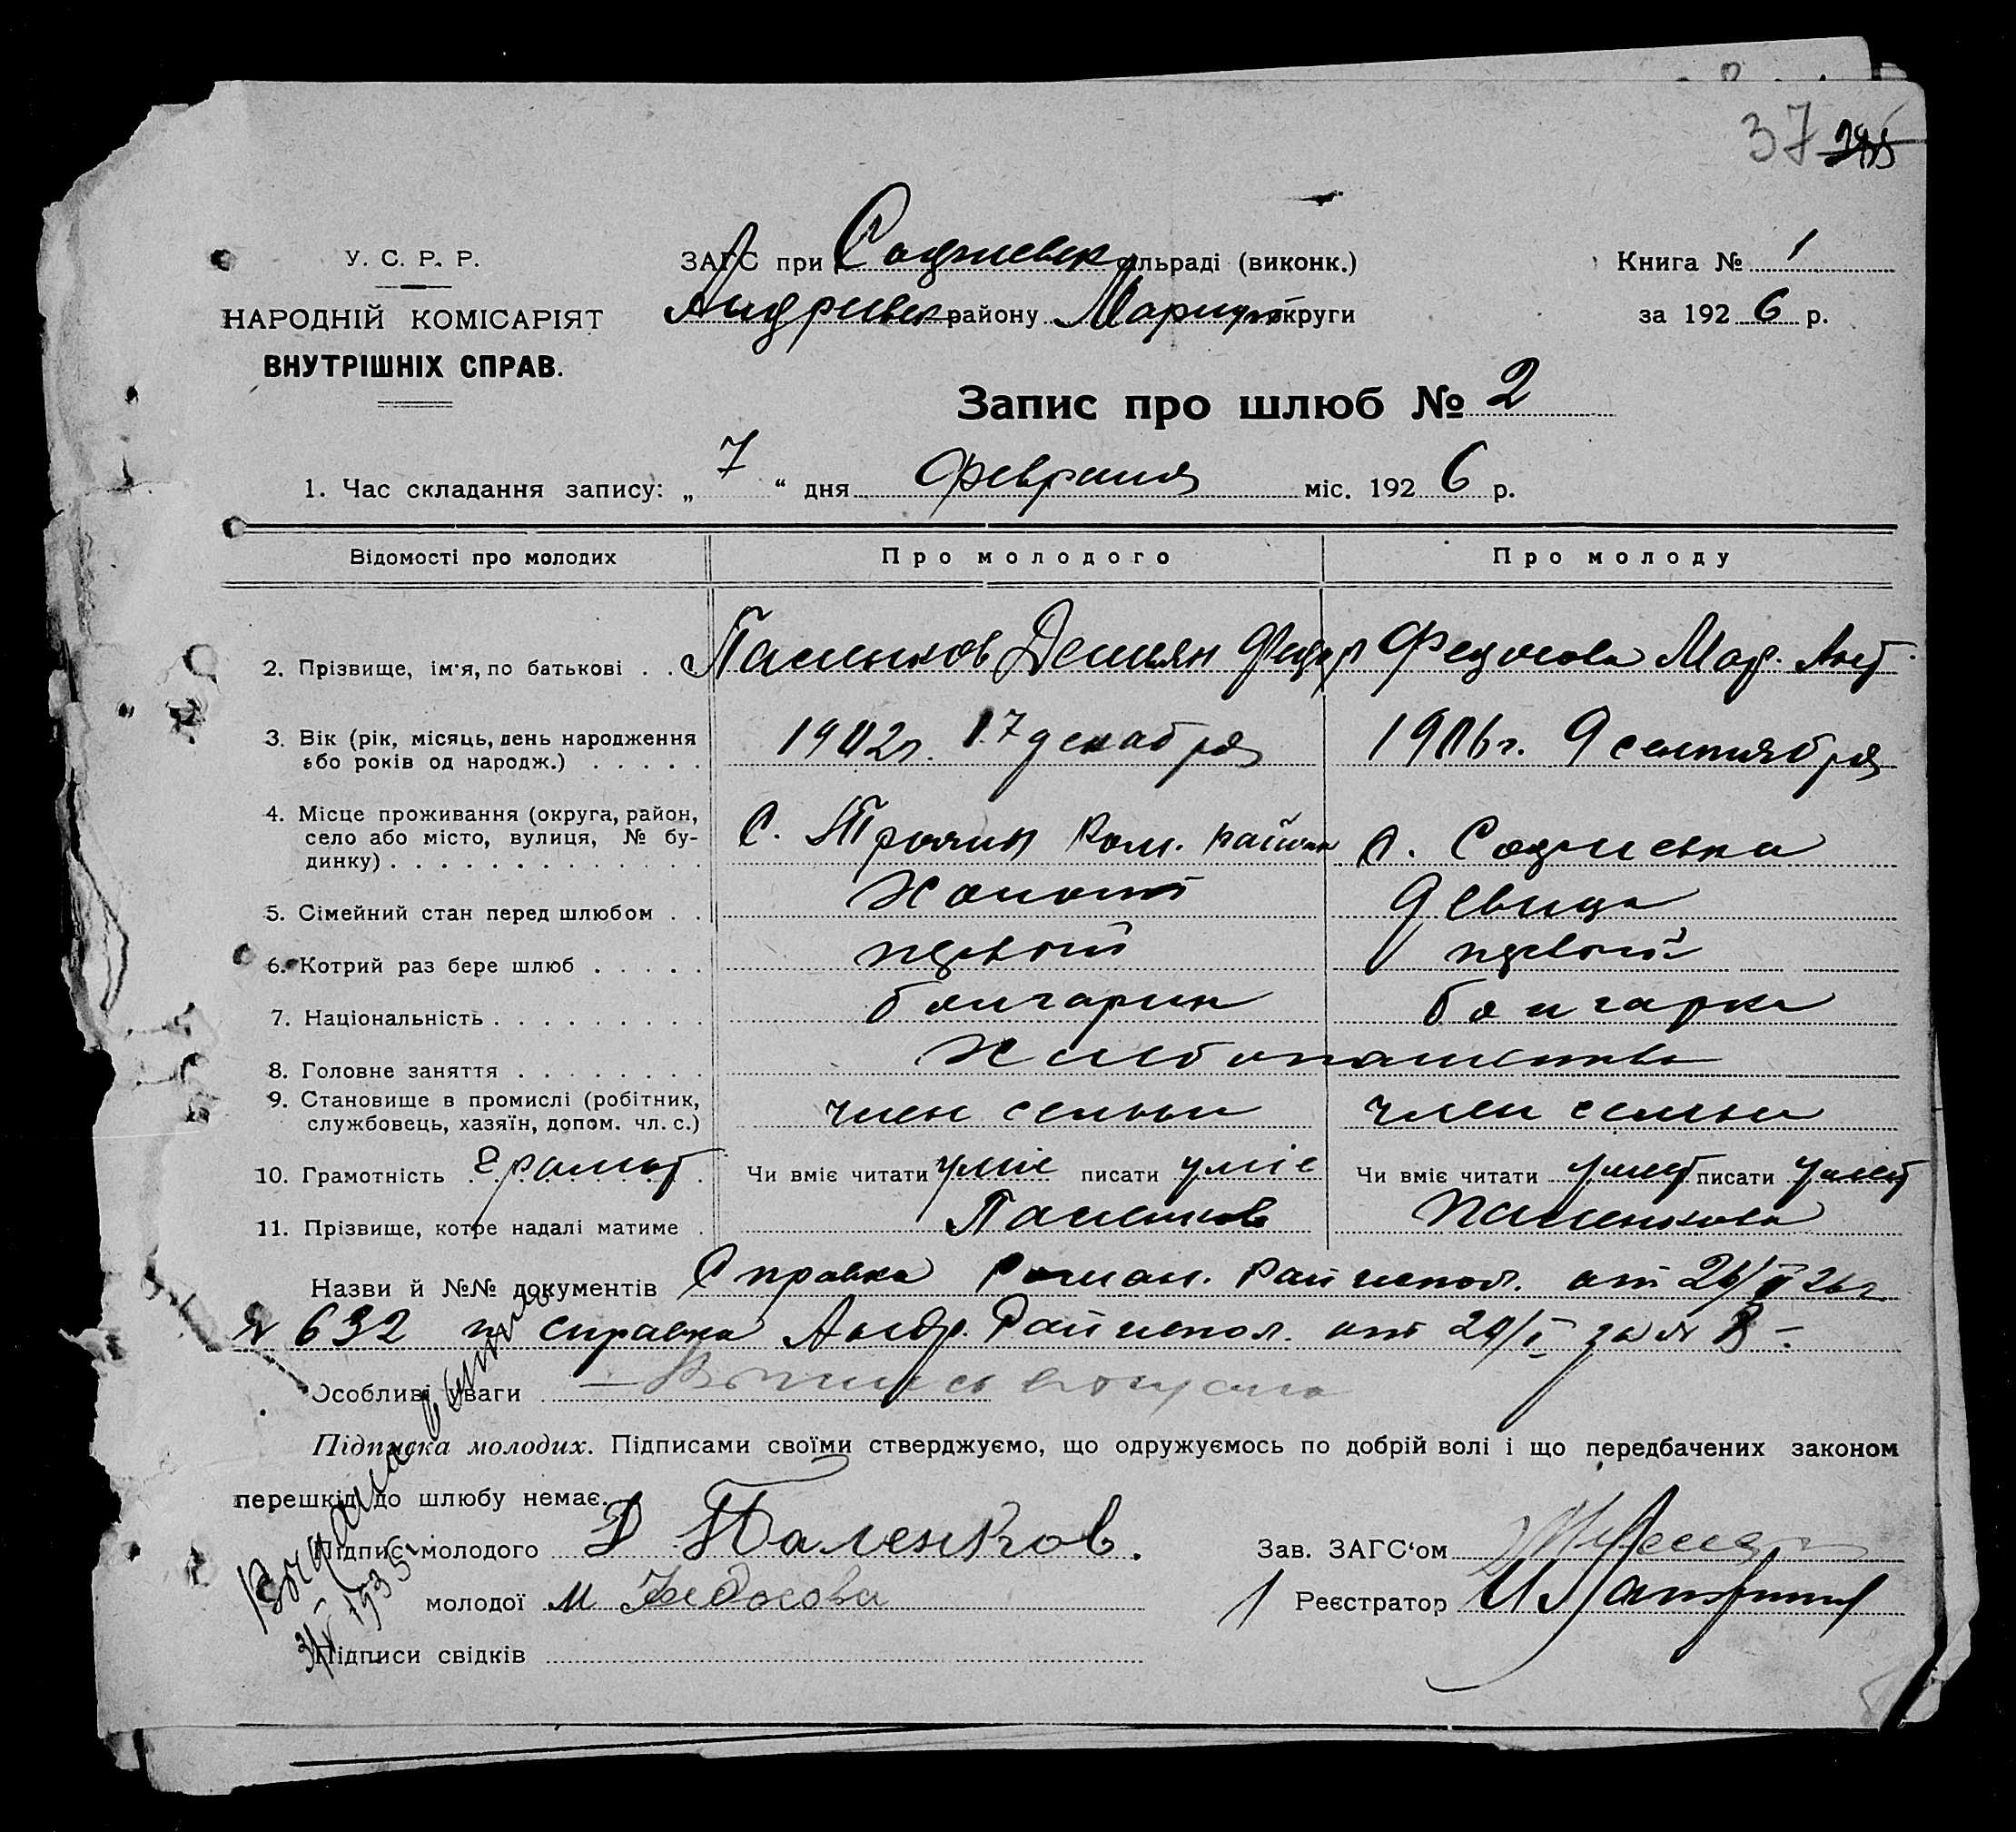 37
У. С. Р. Р.
НАРОДНІЙ КОМІСАРІЯТ
ВНУТРІШНІХ СПРАВ.
ЗАГС при Софиевск сільраді (виконк.)
Андриевск району Мариуп округи
Книга № 1
за 1926 р.
Запис про шлюб № 2
1. Час складання запису: „7“ дня Февраля міс. 1926 р.
Відомості про молодих Про молодого Про молоду
2. Прізвище, ім'я, по батькові . . Паленков Демьян Федор Федосова Мар. Ант.
3. Вік (рік, місяць, день народження
або років од народж.) . . . . . 1902г. 17 декабря 1906г. 9 сентября
4. Місце проживання (округа, район,
село або місто, вулиця, № бу-
динку) . . . . . . . . . . . . . С. Троян Ром. района с. Софиевка
5. Сімейний стан перед шлюбом . . Холост девица
6. Котрий раз бере шлюб . . . . . первый первый
7. Національність . . . . . . . . . болгарин болгарка
8. Головне заняття . . . . . . . . Хлебопашество
9. Становище в промислі (робітник,
службовець, хазяїн, допом. чл. с.) член семьи член семьи
10. Грамотність грамот Чи вміє читати уміє писати уміє Чи вміє читати умеет писати умеет
11. Прізвище, котре надалі матиме . Паленков Паленкова
Назви й №№ документів Справка Роман. Райиспол. от 26/ 26г
№ 632 и справка Андр. Райиспол. от 29/I за №
Особливі уваги —
Підписка молодих. Підписами своїми стверджуємо, що одружуємось по добрій волі і що передбачених законом
перешкід до шлюбу немає.
Підпис молодого Д Паленков.
молодої М Федосова
Підписи свідків
Зав. ЗАГС‘ом
Реєстратор
Выдана
1935